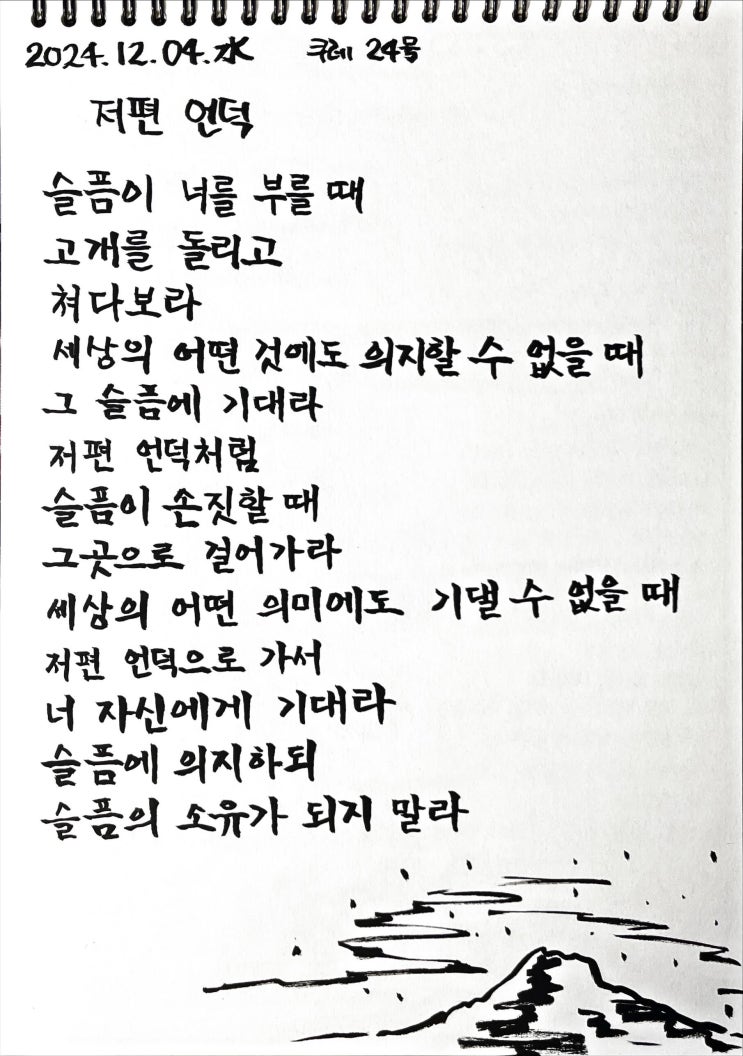 2024.12.04.水 쿠레 24號
저편 언덕
슬픔이 너를 부를 때
고개를 돌리고
쳐다보라
세상의 어떤 것에도 의지할 수 없을 때
그 슬픔에 기대라
저편 언덕처럼
슬픔이 손짓할 때
그곳으로 걸어가라
세상의 어떤 의미에도 기댈 수 없을 때
저편 언덕으로 가서
너 자신에게 기대라
슬픔에 의지하되
슬픔의 소유가 되지 말라